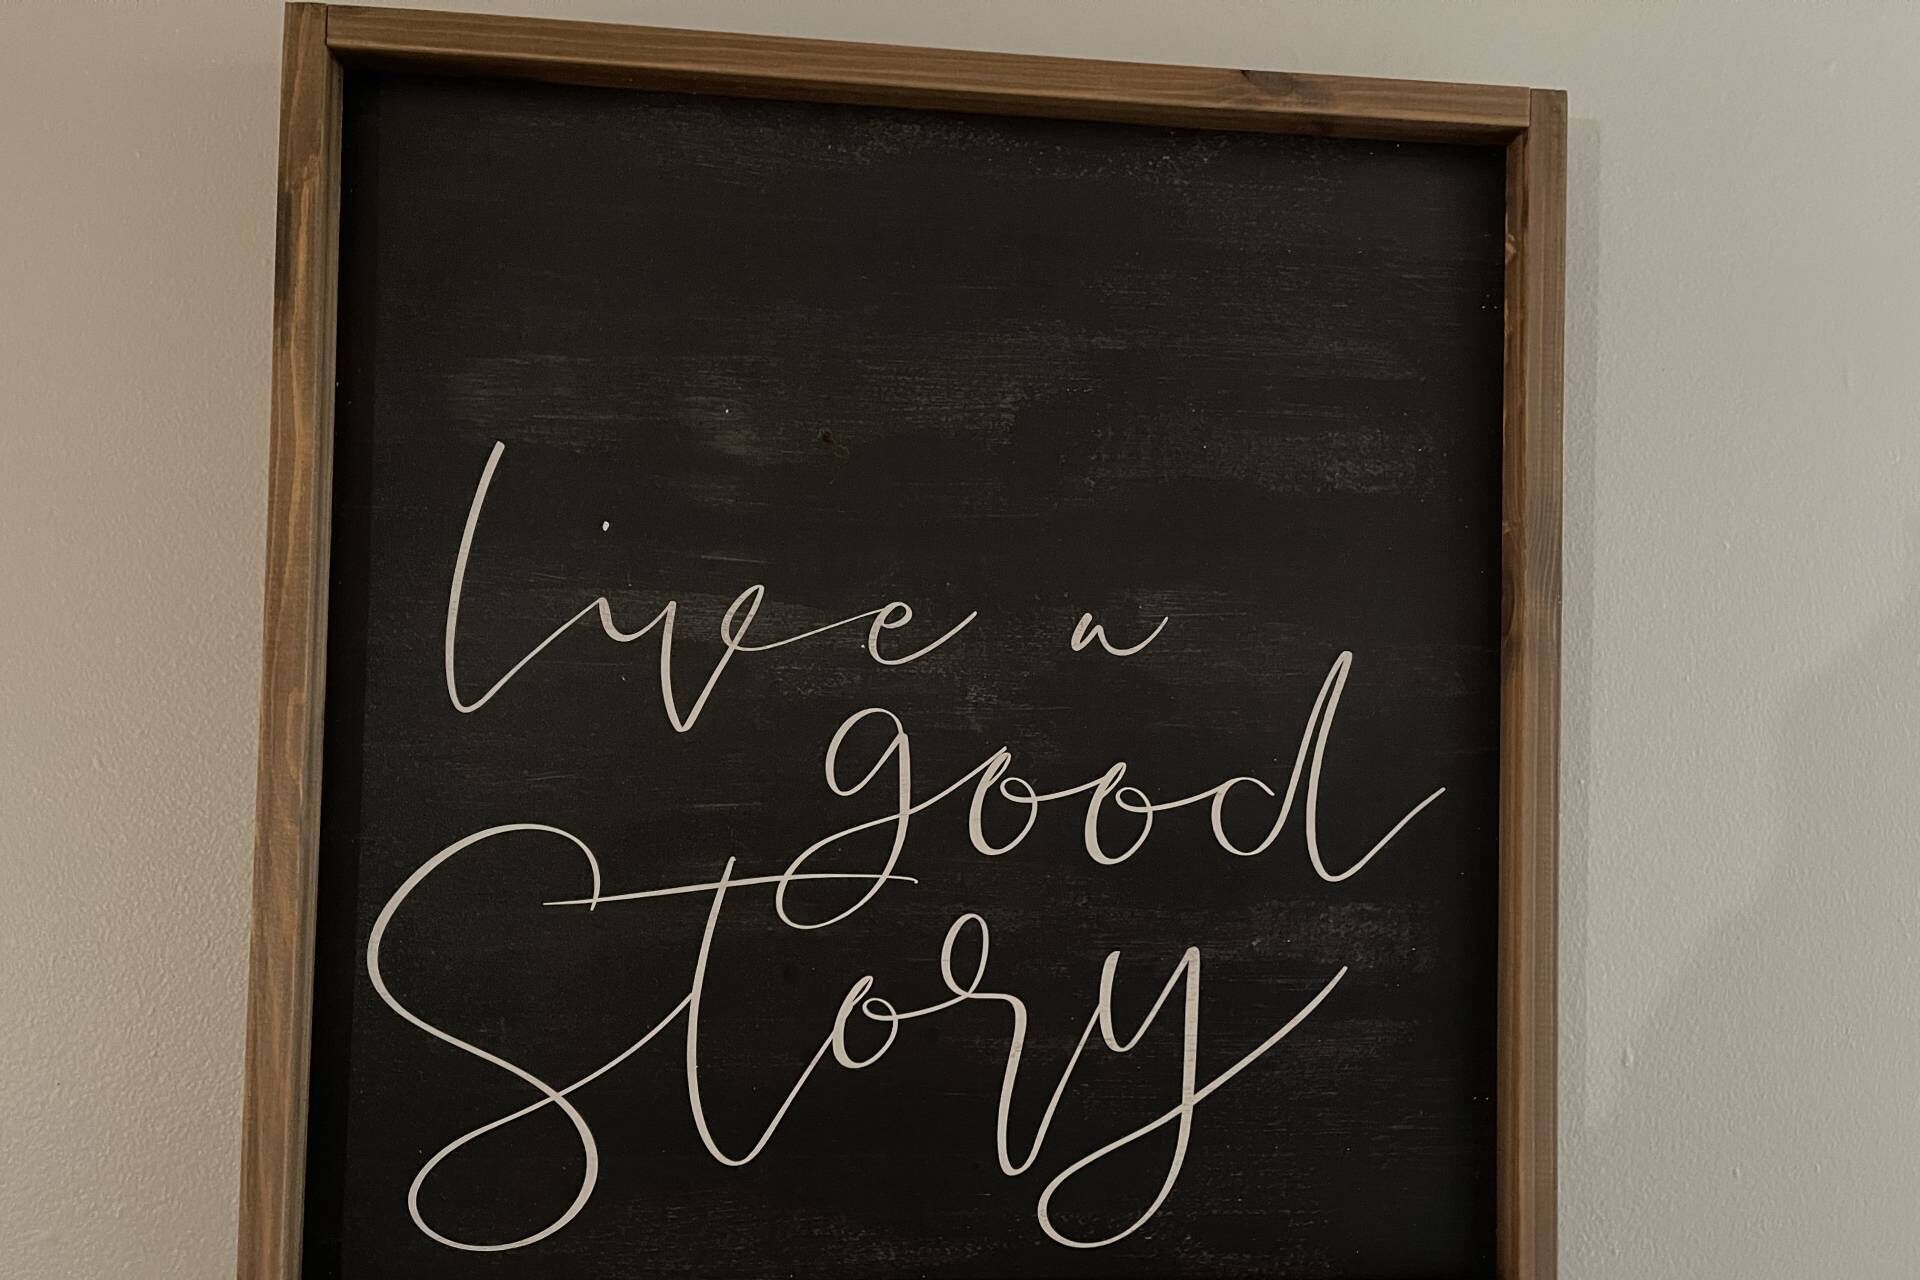 live a
good
Story